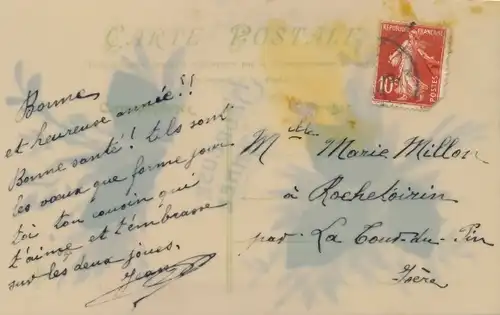 CARTE POSTALE
RÉPUBLIQUE FRANÇAISE
10c
POSTES
Bonne
et heureuse année!!
Bonne santé! tels sont
les vœux que forme pour
toi ton cousin qui
t'aime et t'embrasse
sur les deux joues,
Jean
Mlle Marie Millon
à Rochetoirin
par La Tour-du-Pin
Isère